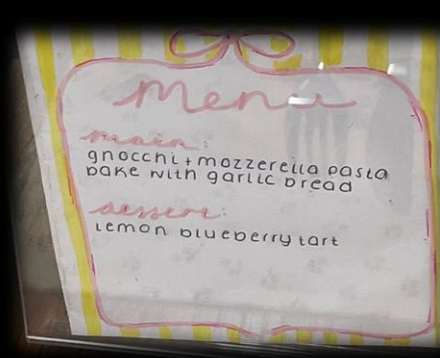 Menu
main:
gnocchi + mozzerella pasta
bake with garlic bread
dessert:
lemon blueberry tart